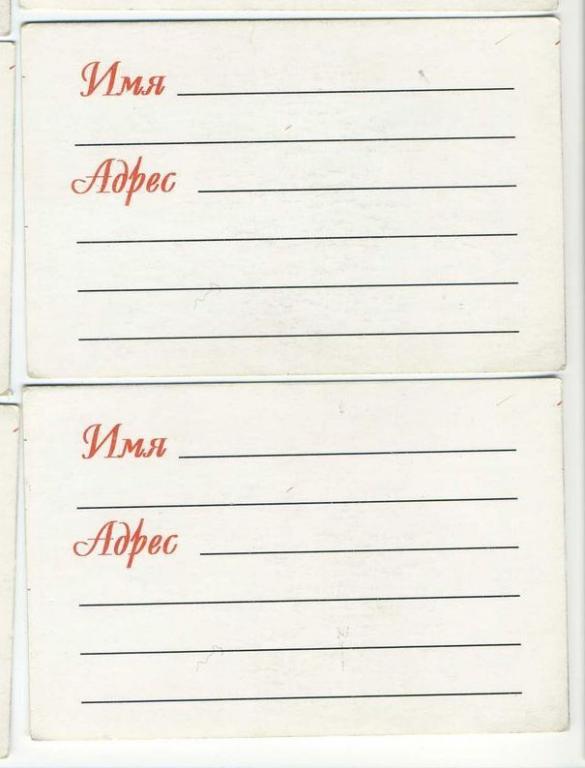 Имя
Адрес
Имя
Адрес